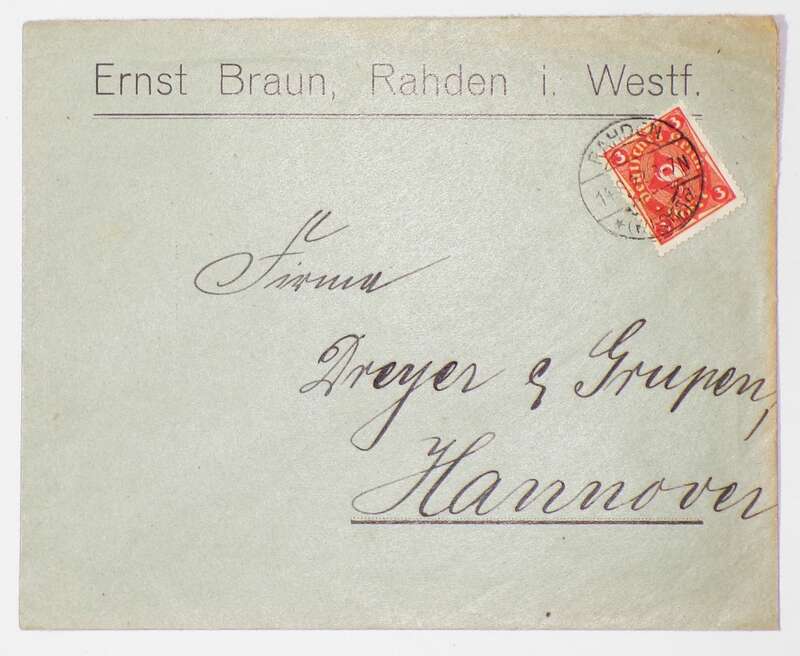 Ernst Braun, Rahden i. Westf.
RAHDEN
3 3
Deutsches Reich
3 3
(WESTF.)
Firma
Dreyer & Grupen,
Hannover